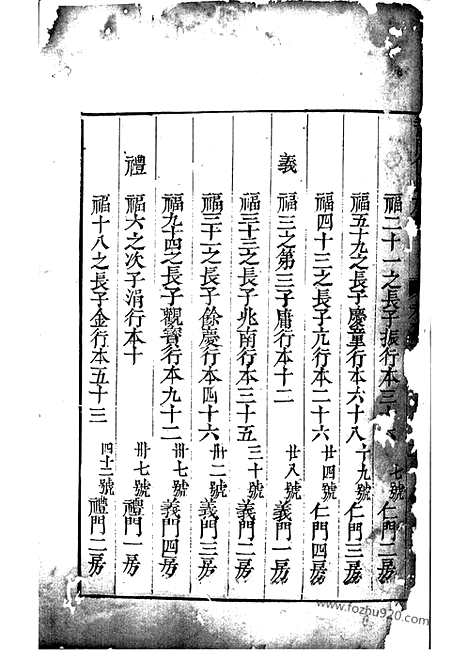 福二十一之長子振行本三 七號仁門二房
福五十九之長子慶童行本六十八 十九號仁門三房
福四十三之長子亢行本二十六 廿四號仁門四房
義 福三之第三子庸行本十二 廿八號義門一房
福三十三之長子兆南行本三十五 三十號義門二房
福三十一之長子餘慶行本四十六 卅二號義門三房
福九十四之長子觀寶行本九十二 卅七號義門四房
禮 福六之次子涓行本十 卅七號禮門一房
福十八之長子金行本五十三 四十二號禮門二房
www.fozhu920.com